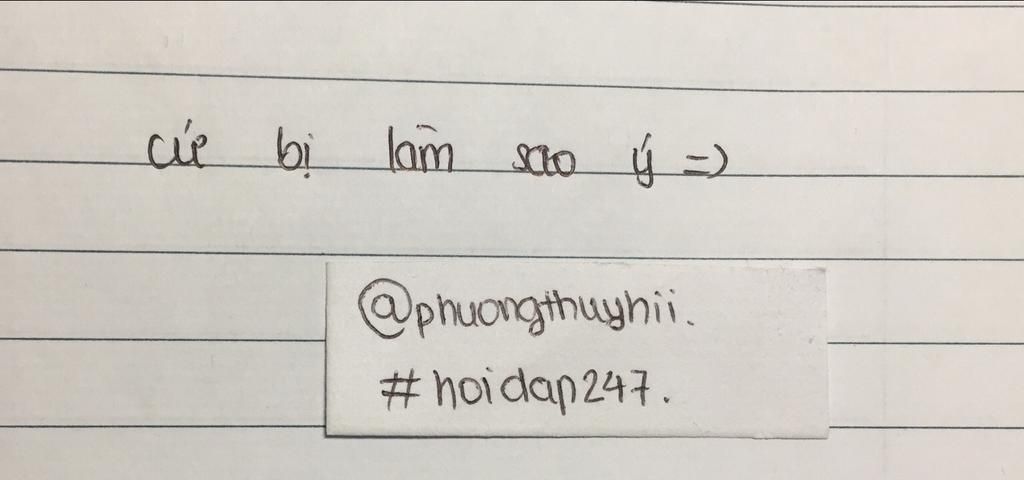 cứ bị làm sao ý =)
@phuongthuyhii.
#hoidap247.